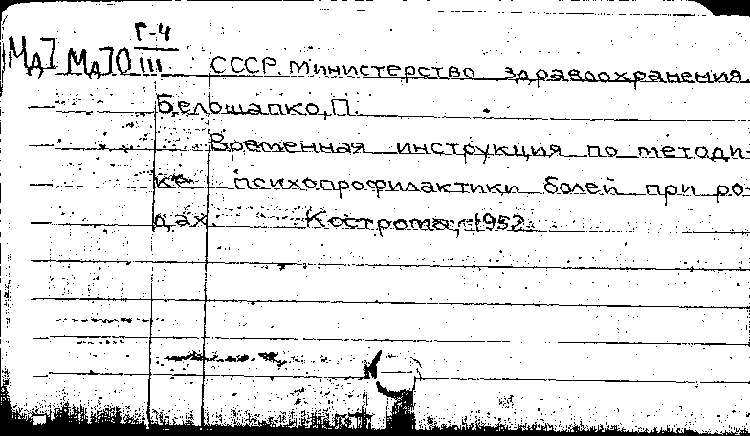 Г-4
III
СССР. Министерство здравоохранения
Белошапко, П.
Временная инструкция по методи-
ке психопрофилактики болей при ро-
дах. Кострома, 1952.